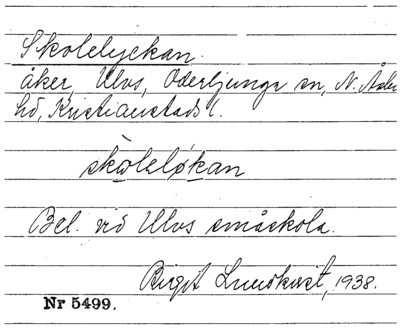 Skolelyckan.
åker, Ulvs, Oderljunga sn, N. Åsbo
hd, Kristianstads l.
skɷleløkan
Bel. vid Ulvs småskola.
Birgit Lundkvist, 1938.
Nr 5499.